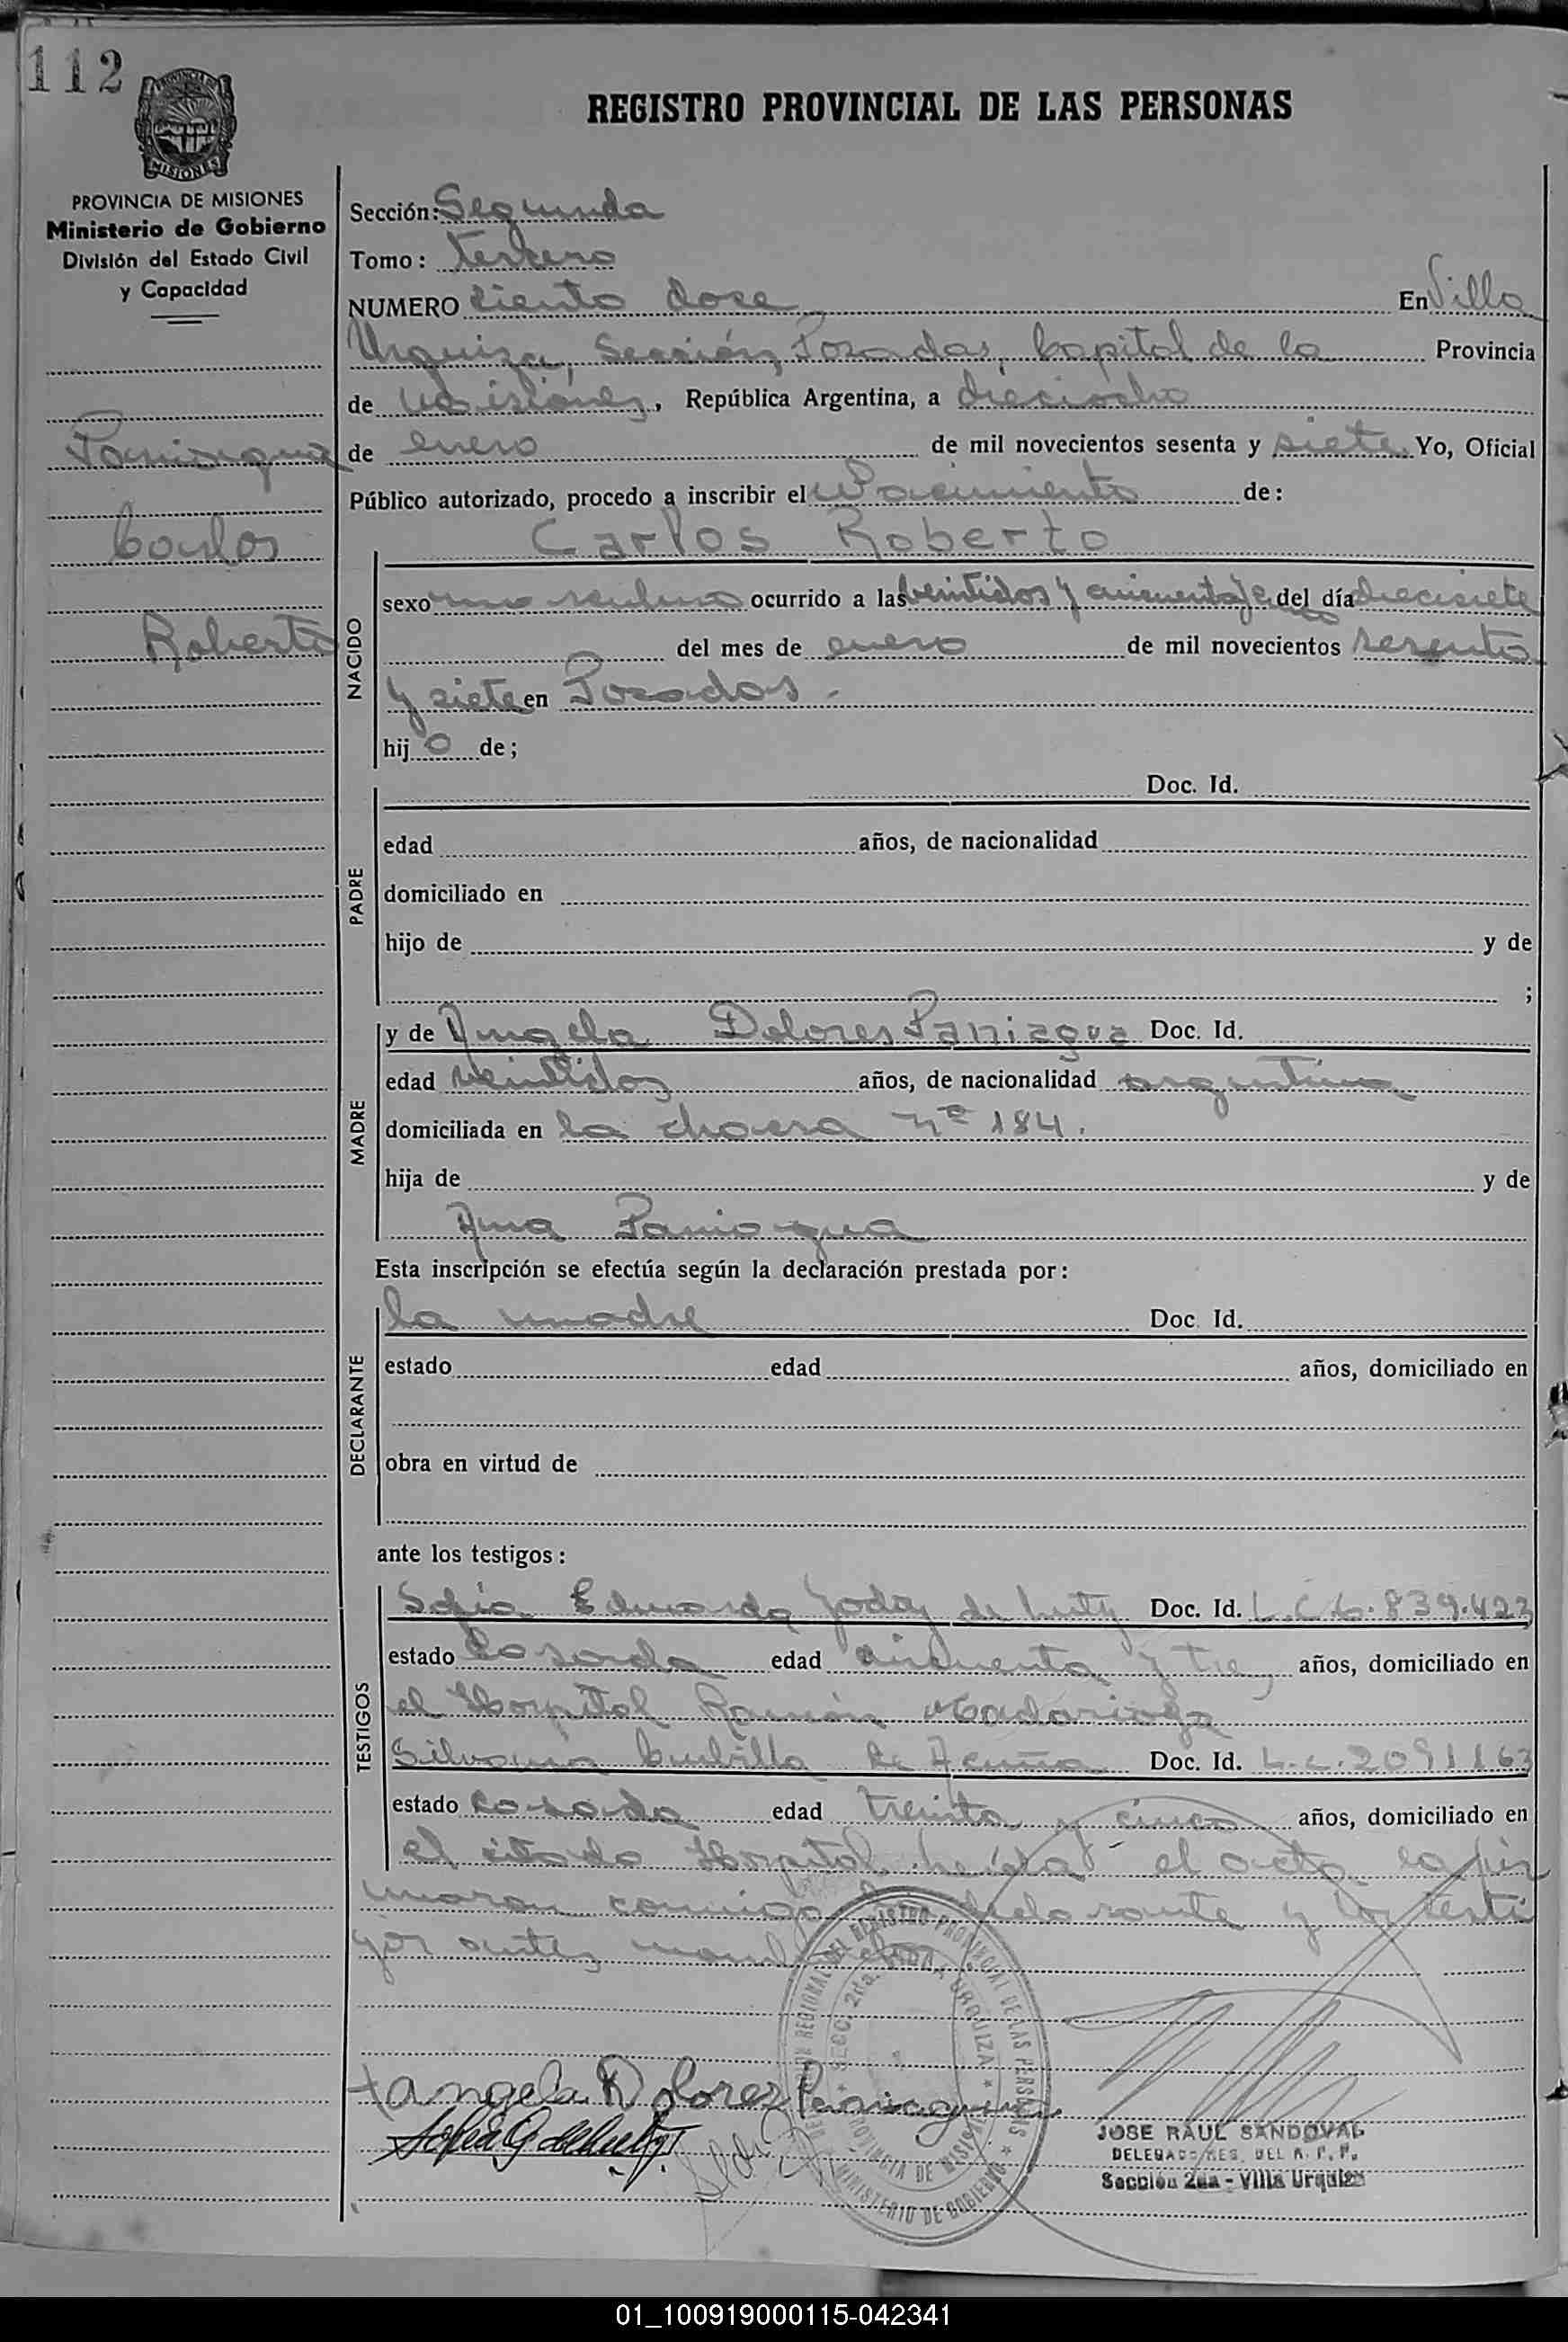 112
REGISTRO PROVINCIAL DE LAS PERSONAS
MISIONES
PROVINCIA DE MISIONES
Ministerio de Gobierno
División del Estado Civil
y Capacidad
Paniagua
Carlos
Roberto
Sección: Segunda
Tomo: tercero
NUMERO ciento doce En Villa
Urquiza, Sección, Posadas, Capital de la Provincia
de Misiones, República Argentina, a dieciocho
de enero de mil novecientos sesenta y siete Yo, Oficial
Público autorizado, procedo a inscribir el Nacimiento de:
Carlos Roberto
NACIDO
sexo masculino ocurrido a las veintidos y cincuenta del día diecisiete
del mes de enero de mil novecientos sesenta
y siete en Posadas.
hijo de;
PADRE
Doc. Id.
edad años, de nacionalidad
domiciliado en
hijo de y de
;
MADRE
y de Angela Dolores Paniagua Doc. Id.
edad veintidos años, de nacionalidad argentina
domiciliada en la chacra nº 184.
hija de y de
Ana Paniagua
Esta inscripción se efectúa según la declaración prestada por:
DECLARANTE
la madre Doc. Id.
estado edad años, domiciliado en
obra en virtud de
ante los testigos:
TESTIGOS
Sofia Eduarda Godoy de Doc. Id. L.C. 6.839.423
estado casada edad cincuenta y tres años, domiciliado en
el Hospital Ramón Madariaga
Silvania de Acuña Doc. Id. L.C. 2091163
estado casada edad treinta y cinco años, domiciliado en
el citado Hospital, leída el acta la fir
maron conmigo declarante y los testi
gos antes
REGISTRO PROVINCIAL DE LAS PERSONAS
SECC. 2da. VILLA URQUIZA
PROVINCIA DE MISIONES
MINISTERIO DE GOBIERNO
Angela Dolores Paniagua
Sofia G de
JOSE RAUL SANDOVAL
DELEGADO REG. DEL R. P. P.
Sección 2da - Villa Urquiza
01_100919000115-042341